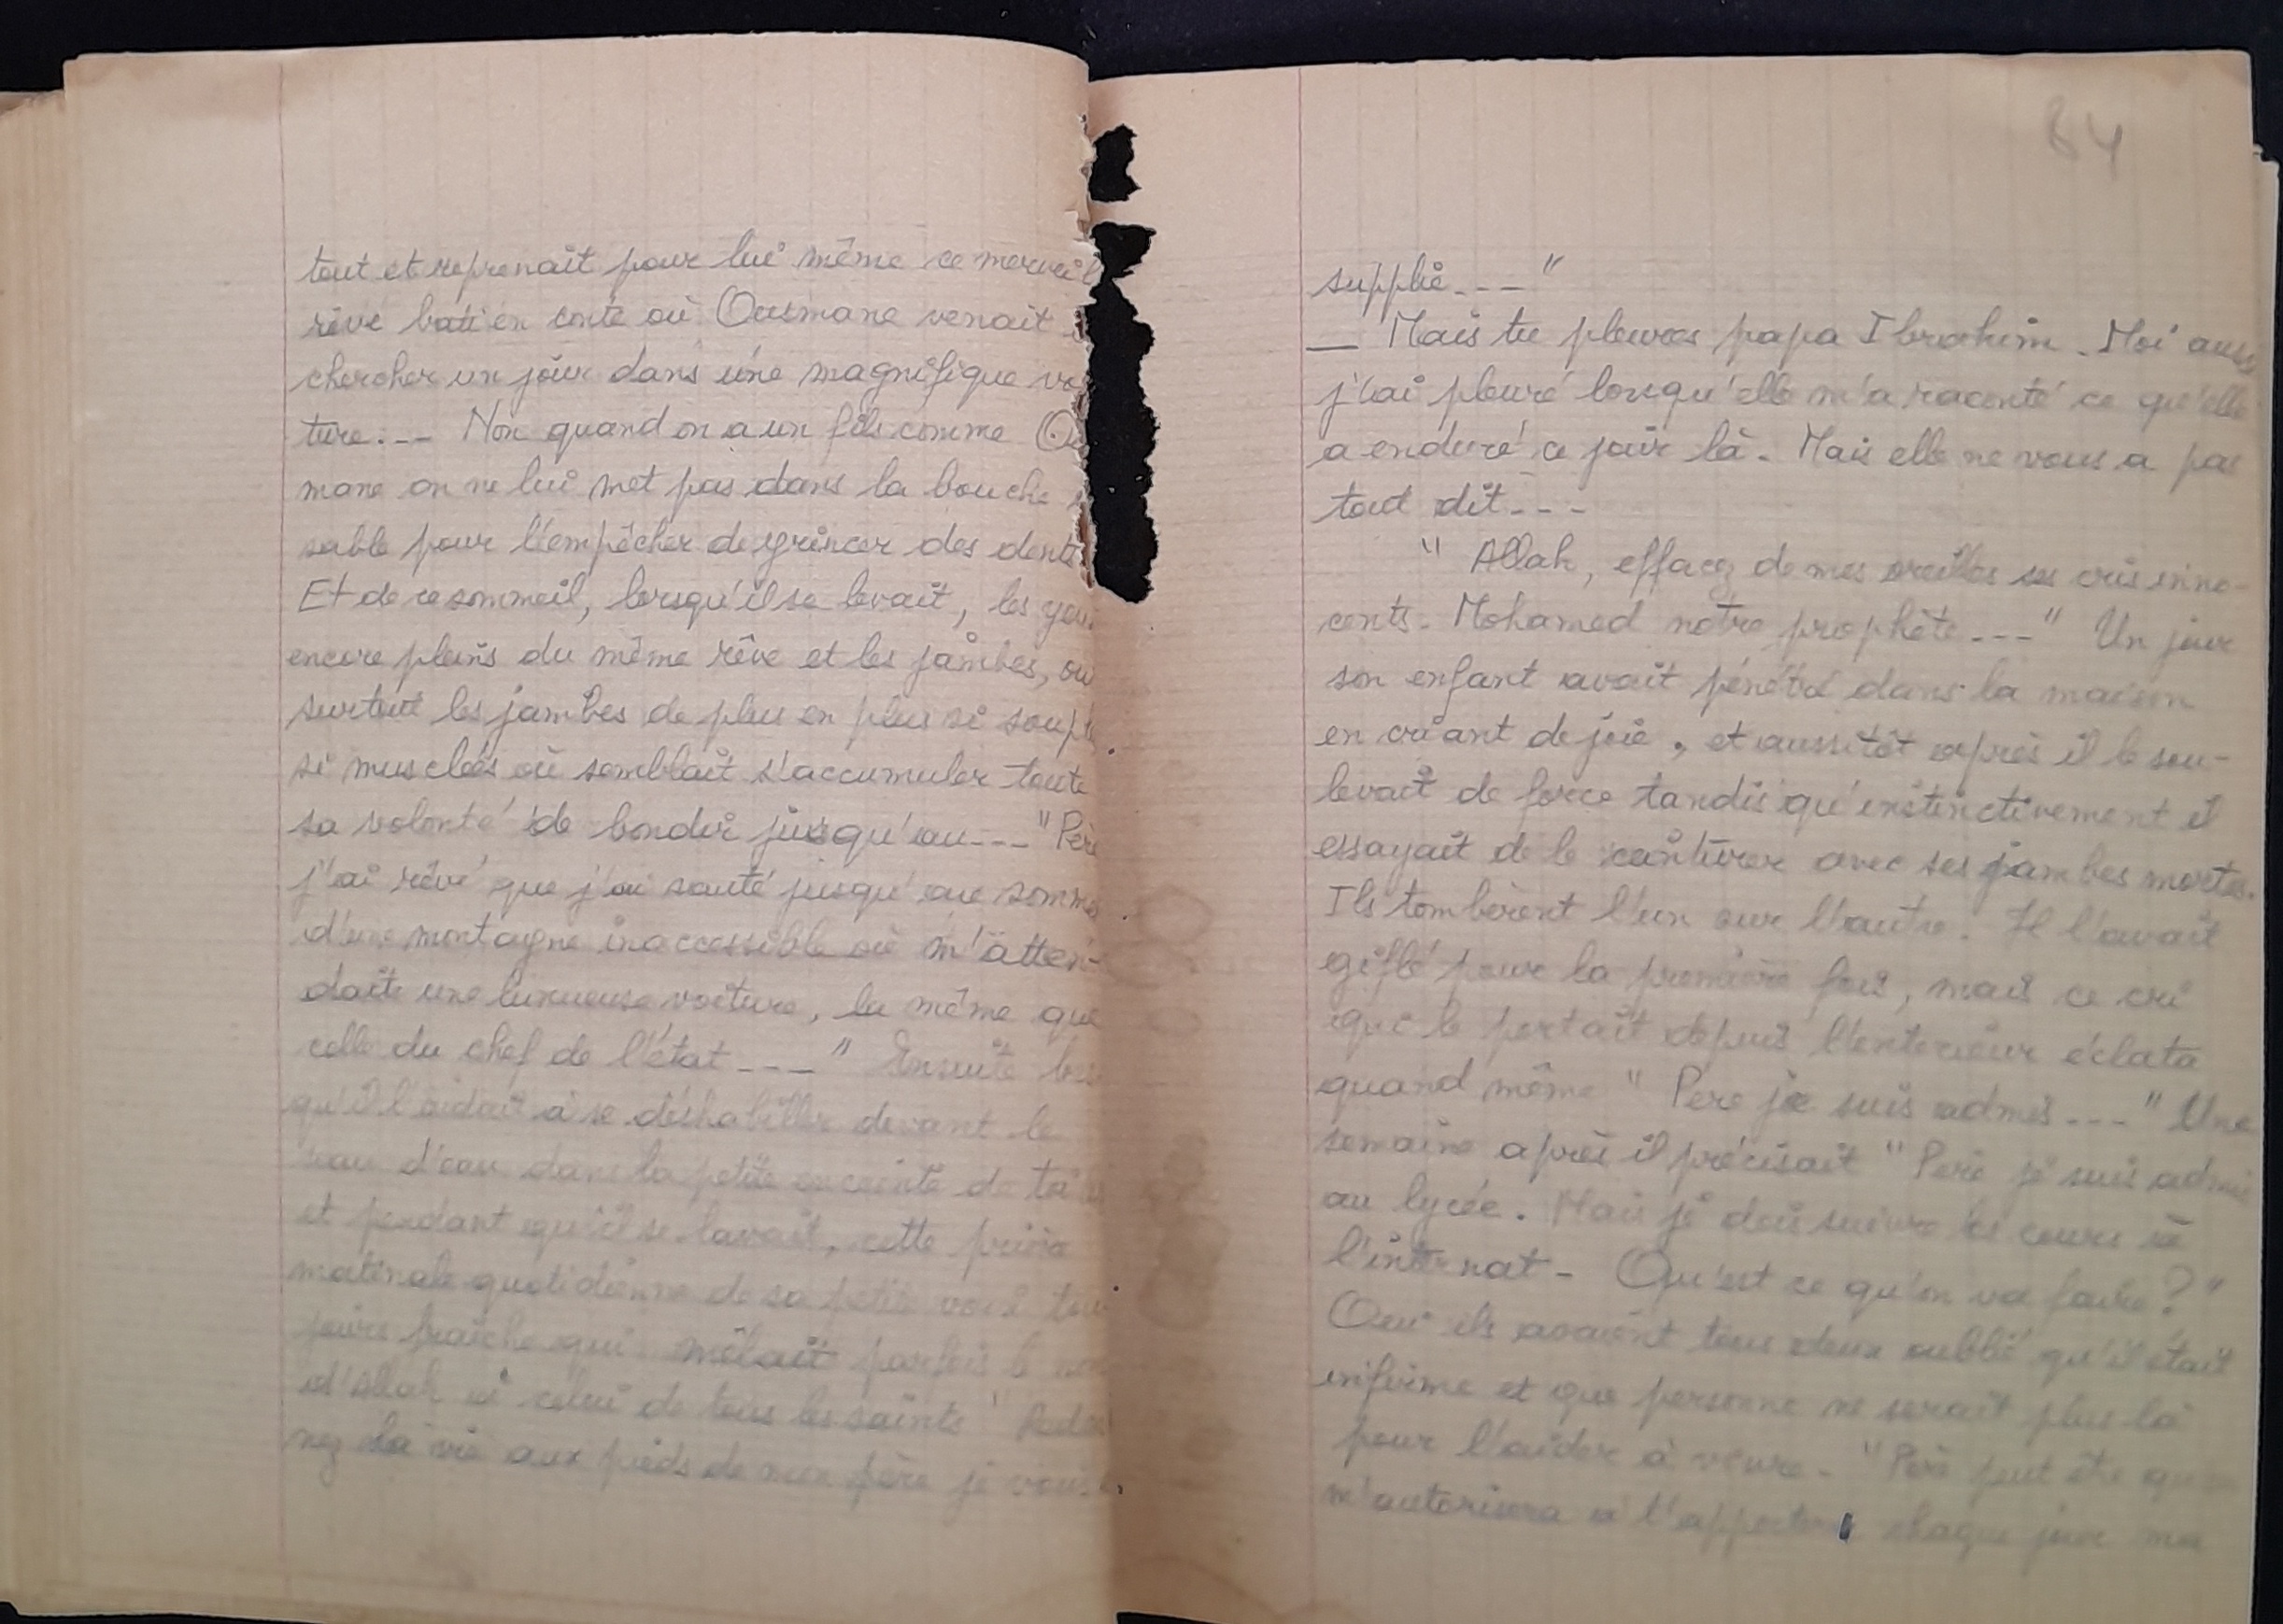 tout et reprenait pour lui même ce merveil
rêve bati en conte où Ousmane venait
chercher un jour dans une magnifique voi
ture.-- Non quand on a un fils comme Ou
mane on ne lui met pas dans la bouche
sable pour l'empêcher de grincer des dents
Et de ce sommeil, lorsqu'il se levait, les yeu
encore pleins du même rêve et les jambes, ou
surtout les jambes de plus en plus si soupl
si musclées où semblait s'accumuler toute
sa volonté de bondir jusqu'au--- "Père
j'ai rêvé que j'ai sauté jusqu'au somme
d'une montagne inaccessible où m'atten-
daite une luxueuse voiture, la même que
celle du chef de l'état ---" Ensuite lors
qu'il l'aidait à se déshabiller devant le
seau d'eau dans la petite enceinte de
et pendant qu'il se lavait, cette prière
matinale quotidienne de sa petite voix tou
jours fraîche qui mêlait parfois le
d'Allah à celui de tous les saints " Redon
nez la vie aux pieds de mon père je vous
84
supplie---"
— Mais tu pleures papa Ibrahim. Moi aussi
j'ai pleuré lorsqu'elle m'a raconté ce qu'elle
a enduré ce jour là. Mais elle ne vous a pas
tout dit---
" Allah, effacez de mes oreilles ses cris inno-
cents. Mohamed notre prophète ---" Un jour
son enfant avait pénétré dans la maison
en criant de joie, et aussitôt après il le sou-
levait de force tandis qu'instinctivement il
essayait de le ceinturer avec ses jambes mortes.
Ils tombèrent l'un sur l'autre. Il l'avait
giflé pour la première fois, mais ce cri
qui le portait depuis l'enterieur éclata
quand même " Père je suis admis ---" Une
semaine après il précisait " Père je suis admis
au lycée. Mais je dois suivre les cours à
l'internat - Qu'est ce qu'on va faire ? "
Oui ils avaient tous deux oublié qu'il était
infirme et que personne ne serait plus là
pour l'aider à vivre - " Père peut être qu
m'autorisera à t'apporter chaque jour ma